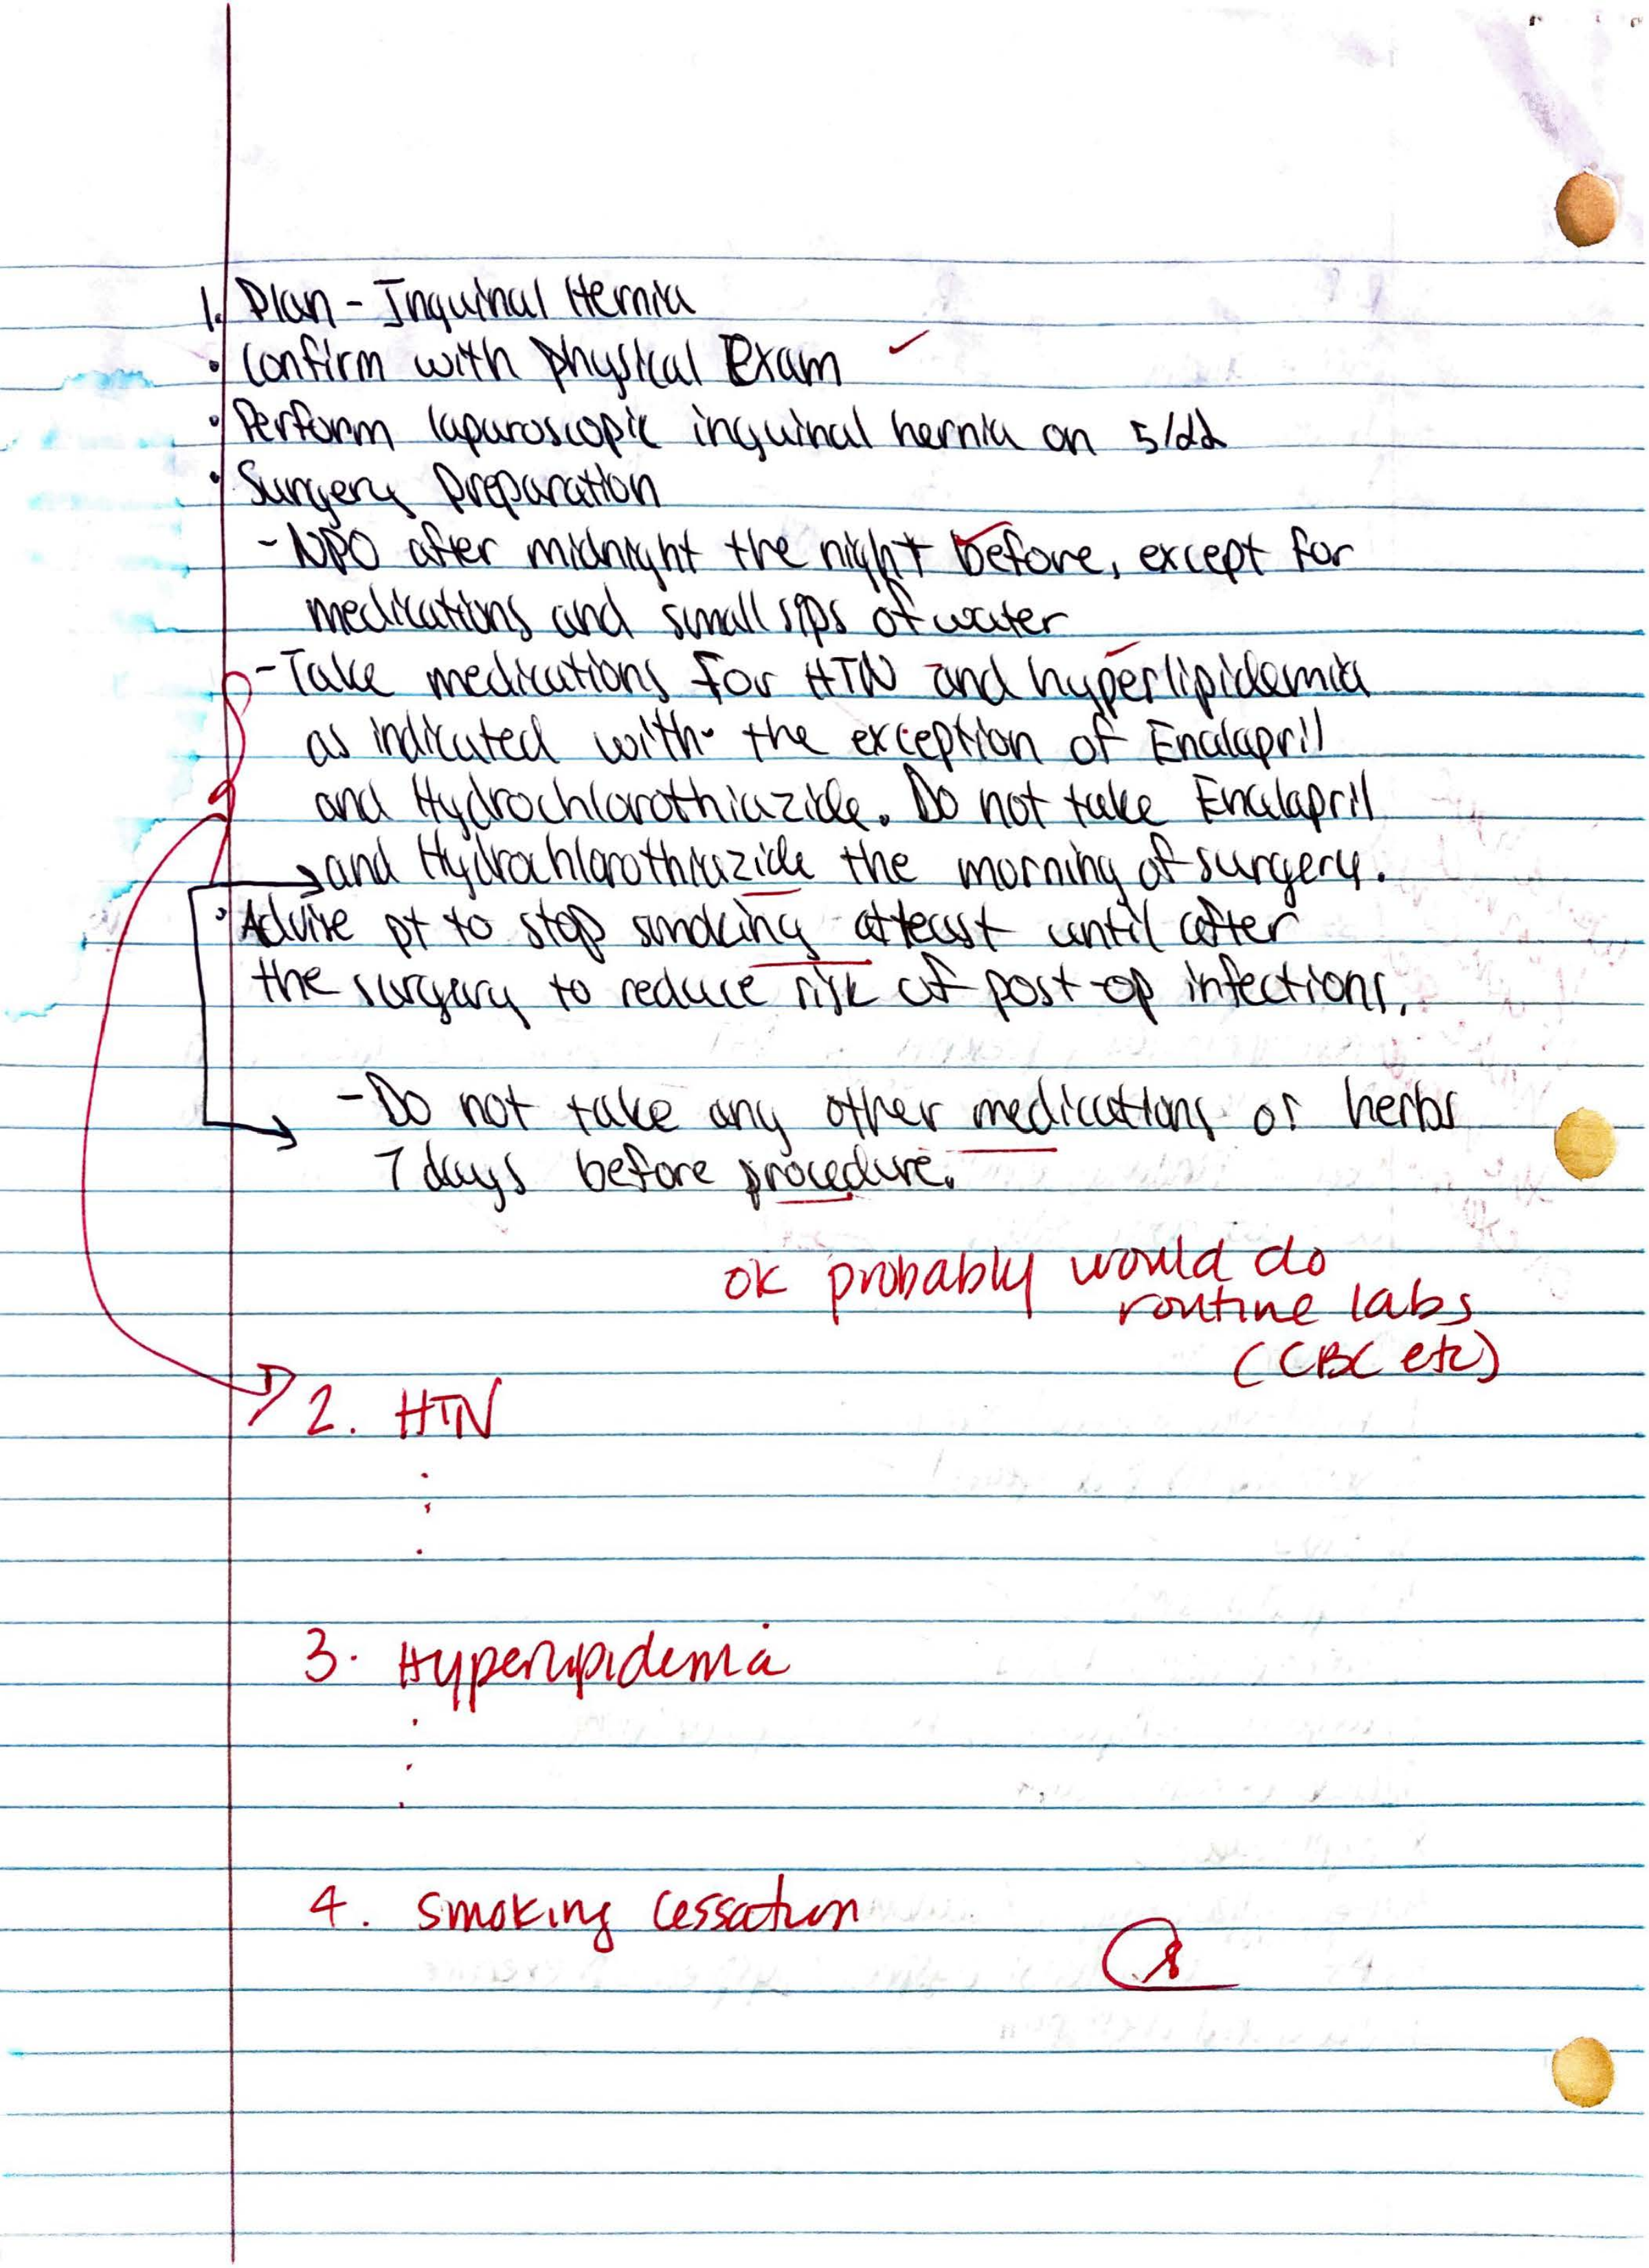 1. Plan - Inguinal Hernia
• Confirm with physical Exam ✓
• Perform laparoscopic inguinal hernia on 5/22
• Surgery Preparation
- NPO after midnight the night before, except for
medications and small sips of water
- Take medications for HTN and hyperlipidemia
as indicated with the exception of Enalapril
and Hydrochlorothiazide. Do not take Enalapril
and Hydrochlorothiazide the morning of surgery.
• Advise pt to stop smoking atleast until after
the surgery to reduce risk of post-op infections.
- Do not take any other medications or herbs
7 days before procedure.
ok probably would do
routine labs
(CBC etc)
2. HTN
3. Hyperlipidemia
4. Smoking cessation